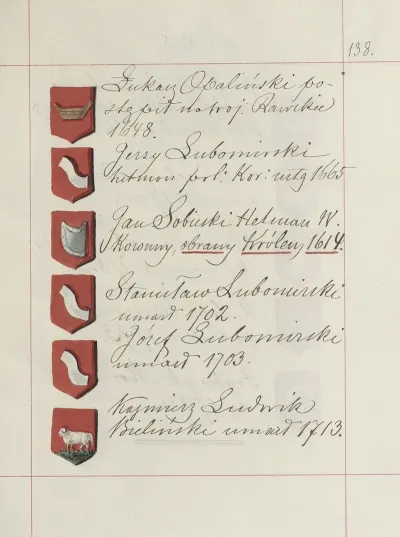 138.
Łukasz Opaliński po-
stąpił na woj. Rawskie
1648.
Jerzy Lubomirski
hetman pol. Kor: ustą 1665
Jan Sobieski Hetman W.
Koronny, obrany Królem, 1614.
Stanisław Lubomirski
umarł 1702.
Józef Lubomirski
umarł 1703.
Kazimierz Ludwik
Bieliński umarł 1713.